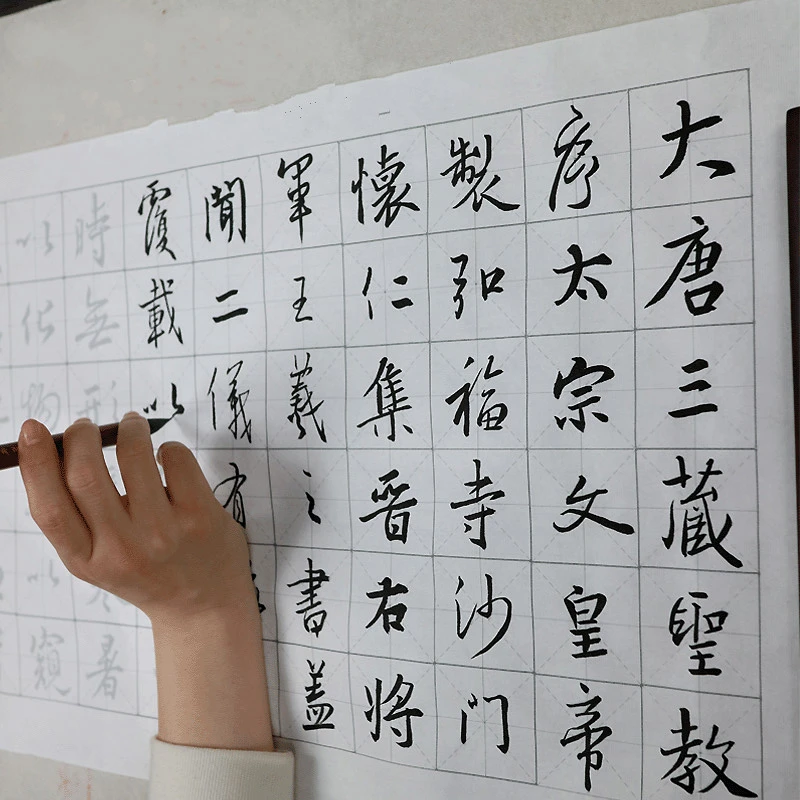 大唐三藏聖教
序太宗文皇帝
製弘福寺沙門
懷仁集晉右將
軍王羲之書蓋
聞二儀有
覆載以
時無形寒暑
以化物以窺